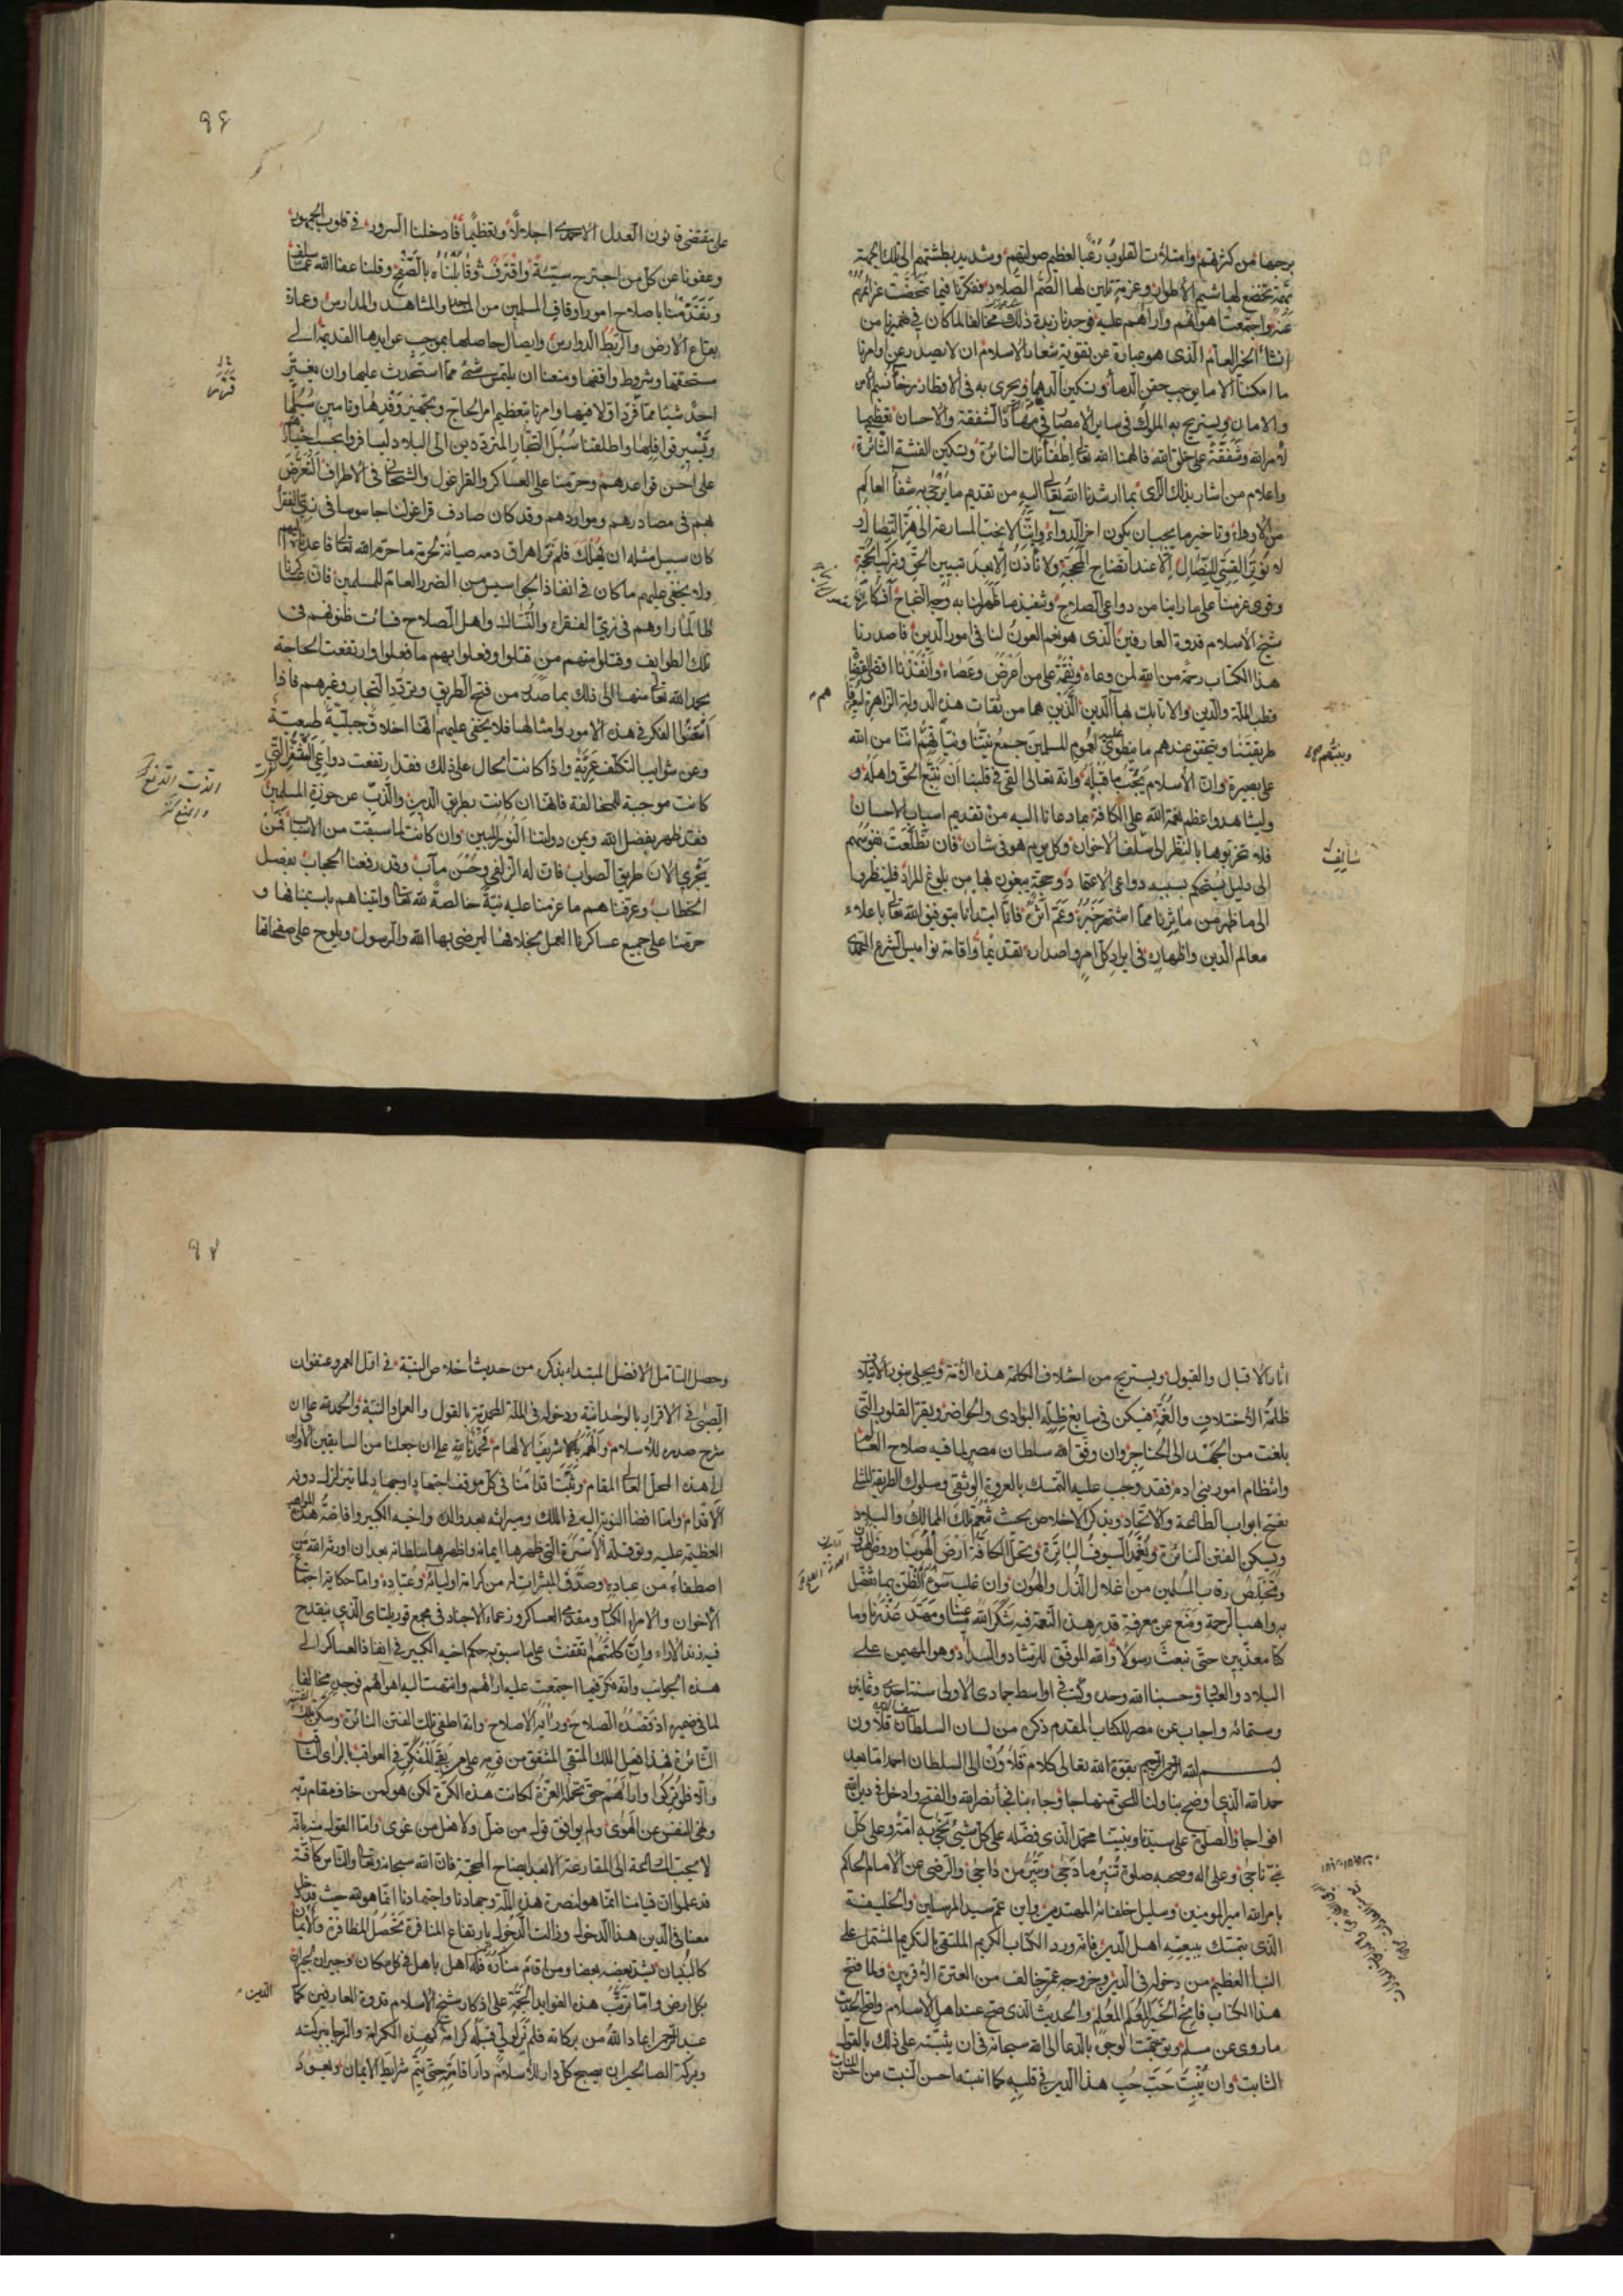 برحبها من كثرتهم وامتلأت القلوب رعبًا لعظيم صولتهم وشديد بطشتهم الى تلك الجهة
بهمّة تخضع لها شم الأطواد وعزمة تلين لها الصّمّ الصّلاد ففكرنا فيما تمخّضت عزائمهم
عنه واجتمعت اهواؤهم وآراؤهم عليه فوجدناه مخالفا لما كان في ضميرنا من
انشاء الخير العام الذى هو عبارة عن تقوية شعار الاسلام ان لا يصدر عن اوامرنا
ما امكننا الا ما يوجب حقن الدماء وتسكين الدهماء ويجرى به فى الاقطار رخاء نسيم الامن
والامان ويستريح به الملوك فى ساير الامصار فى مهاد الشفقة والاحسان تعظيما
لأمر الله وشفقة على خلق الله فالهمنا الله تعالى اطفاء تلك النائرة وتسكين الفتنة الثائرة
واعلام من اشار بذلك الرأى بما ارشدنا الله تعالى اليه من تقديم ما يُرجى به شفاء العالم
من الأدواء وتاخير ما يجب ان يكون اخر الدواء وانّنا لا نحب المسارعة الى هزّ النصال
الا عند ايضاح المحجة ولا نأذن الا بعد تبيين الحق وتركيب الحجة
وقوى عزمنا على ما راينا من دواعى الصلاح وتنفيذ ما ظهر لنا به وجه النجاح
شيخ الاسلام قدوة العارفين الذى هو نعم العون لنا فى امور الدين فاصدرنا
هذا الكتاب رحمة من الله لمن دعاه ونقمة على من اعرض وعصاه وانفذنا اقضى القضاة
قطب الملة والدين والاتابك بهاء الدين الذين هما من ثقات هذه الدولة الزاهرة ليعرّفاهم
طريقتنا ويتحقق عندهم ما ينطوى عليه لعموم المسلمين جميع نيتنا انّنا من الله
على بصيرة وان الأسلام يجبّ ما قبله وانه تعالى القى فى قلبنا ان نتبع الحق واهله و
وليشاهدوا عظم نعمة الله على الكافة بما دعانا اليه من تقديم اسباب الاحسان
فلا تحرموها بالنظر الى سالف الاخوان وكل يوم هو فى شأن فان تطلعت نفوسهم
الى دليل يستحكم بسببه دواعى الاعتماد وحجة يبغون بها من بلوغ المراد فلينظروا
الى ما ظهر من مآثرنا مما اشتهر خبره وعمّ اثره فانا ابتدأنا بتوفيق الله تعالى باعلاء
معالم الدين واظهاره فى ايراد كل امر واصداره تقديما واقامة نواميس الشرع المحمدى
شايف
٩٦
على مقتضى قانون العدل الاحمدى اجلالًا وتعظيمًا فادخلنا السرور فى قلوب الجمهور
وعفونا عن كل من اجترح سيّئة واقترف وقابلناه بالصّفح وقلنا عفا الله عما سلف
وتقدمنا باصلاح امور اوقاف المسلمين من المساجد والمشاهد والمدارس وعمارة
بقاع الارض والربط الدوارس وايصال حاصلها بموجب عوايدها القديمة الى
مستحقها وشروط واقفها ومنعنا ان يلتمس شئ مما استحدث عليها وان يغيّر
احد شيئا مما قرّر اولا فيها وامرنا بتعظيم امر الحاج وتجهيز وفدها وتامين سبلها
وتسيير قوافلها واطلقنا سبل التجار المترددين الى البلاد ليسافروا بحسب اختيارهم
على احسن قواعدهم وحرّمنا على العساكر والقراغول والشحانى فى الاطراف التعرّض
بهم فى مصادرهم ومواردهم وقد كان صادف قراغولنا جاسوسا فى زىّ الفقراء
كان سبيل مثله ان يهلك فلم نر اهراق دمه صيانة لحرمة ما حرّم الله تعالى فاعدناه اليهم
ولا يخفى عليهم ما كان فى انفاذ الجواسيس من الضرر العام للمسلمين فان عساكرنا
طالما راوهم فى زىّ الفقراء والنّسّاك واهل الصلاح فساءت ظنونهم فى
تلك الطوايف وقتلوا منهم من قتلوا وفعلوا بهم ما فعلوا وارتفعت الحاجة
بحمد الله تعالى منها الى ذلك بما صدر من فتح الطريق وتردّد التجار وغيرهم فاذا
امعنوا الفكر فى هذه الامور وامثالها فلا يخفى عليهم انها اخلاق جبلّيّة طبيعيّة
وعن شوايب التكلّف عريّة واذا كانت الحال على ذلك فقد ارتفعت دواعى التى
كانت موجبة للمخالفة فانها ان كانت بطريق الدين والذّبّ عن حوزة المسلمين
فقد ظهر بفضل الله ويمن دولتنا النور المبين وان كانت لما سبقت من الاسباب فمن
يتحرى الان طريق الصواب فان له الزلفى وحسن مآب وقد رفعنا الحجاب بفصل
الخطاب وعرّفناهم ما عزمنا عليه نيّة خالصة لله تعالى واتيناهم باستينافها و
حرّمنا على جميع عساكرنا العمل بخلافها ليرضى بها الله والرسول ويلوح على صفحاتها
اثار الاقبال والقبول ويستريح من اختلاف الكلمة هذه الأمة ويجلى بنور الايتلاف
ظلمة الاختلاف والغمّة فيسكن فى سابغ ظلّه البوادى والحواضر ويقر القلوب التى
بلغت من الجهد الى الحناجر وان وفّق الله سلطان مصر لما فيه صلاح العالم
وانتظام امور بنى ادم فقد وجب عليه التمسك بالعروة الوثقى وسلوك الطريقة المثلى
بفتح ابواب الطاعة والاتحاد وبذكر الاخلاص بحيث تعمر تلك الممالك والبلاد
وتسكن الفتن الثائرة وتغمد السيوف الباترة وتحل الكافة ارض الهوينا وروض الهدون
وتخلص رقاب المسلمين من اغلال الذل والهون وان غلب سوء الظن بما تفضل
به واهب الرحمة ومنع عن معرفة قدر هذه النعمة فيشكر الله مساعينا ومهّد عذرنا وما
كنا معذبين حتى نبعث رسولا والله الموفق للرشاد والسداد وهو المهيمن على
البلاد والعباد وحسبنا الله وحده وكتب فى اواسط جمادى الاولى سنة احدى وثمانين
وستمائه واجاب عن مصر للكتاب المقدم ذكره من لسان السلطان سيف الدين قلاون
بسم الله الرحمن الرحيم بقوة الله تعالى كلام قلاوُن الى السلطان احمد اما بعد
حمد الله الذى اوضح بنا ولنا للحق منهاجا وجاء بنا فجاء نصر الله والفتح وادخل فى دين الله
افواجا والصلوة على سيدنا ونبينا محمد الذى فضّله على كل نبى نجّى به امّته وعلى كل
نبىّ ناجى وعلى اله وصحبه صلوة تنير ما دجى وتنير من داجى والرضى عن الامام الحاكم
بامر الله امير المومنين وسليل خلفائه المهتدين وابن عم سيد المرسلين والخليفة
الذى يتمسك ببيعته اهل الدين فانه ورد الكتاب الكريم الملتقى بالتكريم المشتمل على
النبأ العظيم من دخوله فى الدين وخروجه عمن خالف من العترة الاقربين ولما فتح
هذا الكتاب فاتح الخبر المُعلَم المُعلِم والحديث الذى صحّ عند اهل الاسلام واصح الحديث
ما روى عن مسلم وتوجّهت الوجوه بالدعاء الى الله سبحانه فى ان يثبّته على ذلك بالقول
الثابت وان يُنبت حبّ حُبّ هذا الدين فى قلبه كما انبته احسن النبت من اخشن المنابت
٩٧
وحصل التامل الافضل المبتداء بذكره من حديث اخلاص النية فى اول العمر وعنفوان
الصبى فى الاقرار بالوحدانية ودخوله فى الملة المحمدية بالقول والعمل والنية والحمد لله على ان
شرح صدره للاسلام والهمه شريف الالهام فحمدنا لله على ان جعلنا من السابقين الأولين
الى هذه المحل العالى المقام وثبّت اقدامنا فى كل موقف اجتهاد وجهاد لما تتزلزل دونه
الاقدام واما افضاء النوبة اليه فى الملك وميراثه بعد والده واخيه الكبير وافاضة هذه المواهب
العظيمة عليه وتوقله الاسرّة التى طهرها ايمانه واظهرها سلطانه بعد ان اورثه الله من
اصطفاه من عباده وصدّق المبشرات له من كرامة اوليائه وعبّاده واما حكاية اجتماع
الاخوان والامراء الكبار ومقدمى العساكر وزعماء الاجناد فى مجمع قوريلتاى الذى ينقدح
فيه زند الاراء وانّ كلمتهم اتفقت على ما سبق به حكم اخيه الكبير فى انفاذ العساكر الى
هذه الجوانب وانه فكر فيما اجتمعت عليه اراؤهم وانتهت اليه اهواؤهم فوجده مخالفا
لما فى ضميره اذ قصده الصلاح ورأيه الاصلاح وانه اطفى تلك الفتن النائرة وسكن تلك
الثائرة فهذا فعل الملك المتقى المشفق من قومه على من بقى المفكر فى العواقب بالراى الثاقب
والا فلو تركوا وآراءهم حتى تحملهم العزّة لكانت هذه الكرّة لكن هو كمن خاف مقام ربه
ونهى النفس عن الهوى ولم يوافق قول من ضلّ ولا فعل من غوى واما القول منه بانه
لا يحب المسارعة الى المقارعة الا بعد ايضاح المحجة فان الله سبحانه وتعالى والناس كافة
قد علموا ان قيامنا انما هو لنصرة هذه الملة وجهادنا واجتهادنا انما هو لله حيث قد دخل
معنا فى الدين هذا الدخول وزالت الذحول بارتفاع المنافرة تحصُل المظافرة والايمان
كالبنيان يشدّ بعضه بعضا ومن اقام مناره فله اهل باهل فى كل مكان وجيران بجيران
بكل ارض واما ترتّب هذه الفوايد الجمّة على اذكار شيخ الاسلام قدوة العارفين كمال
عبد الرحمن اعاد الله من بركاته فلم تر لولى قبله كرامة كهذه الكرامة والرجا ببركته
وبركة الصالحين ان يصبح كل دار للاسلام دار اقامة حتى يتم شرايط الايمان ويعود
الدين